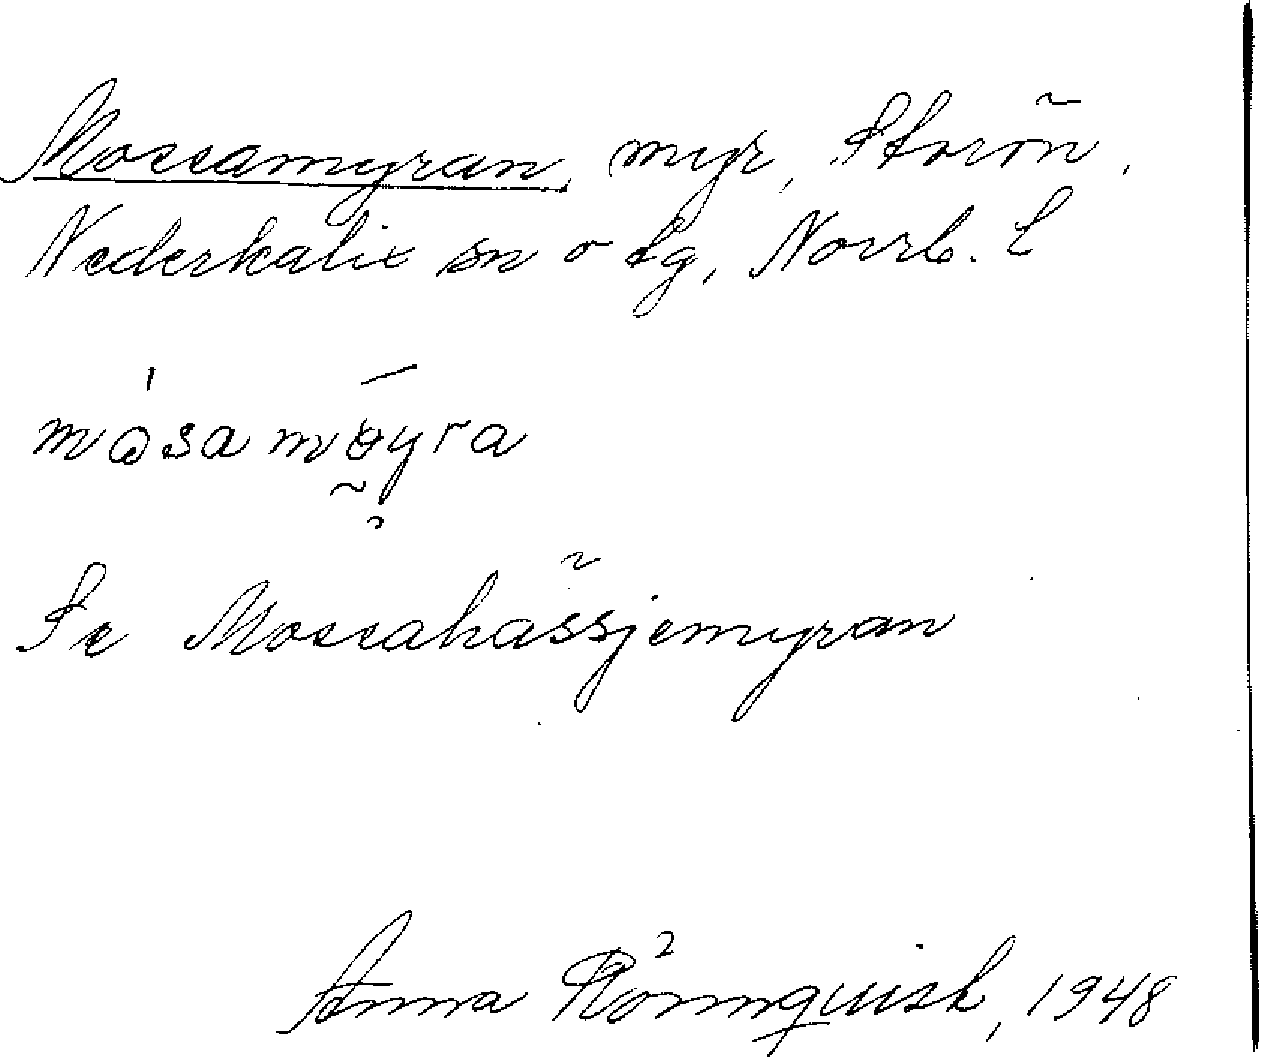 Mossamyran, myr, Storön,
Nederkalix sn o tg, Norrb. l
måsamøyra
Se Mossahässjemyran
Anna Rönnquist, 1948